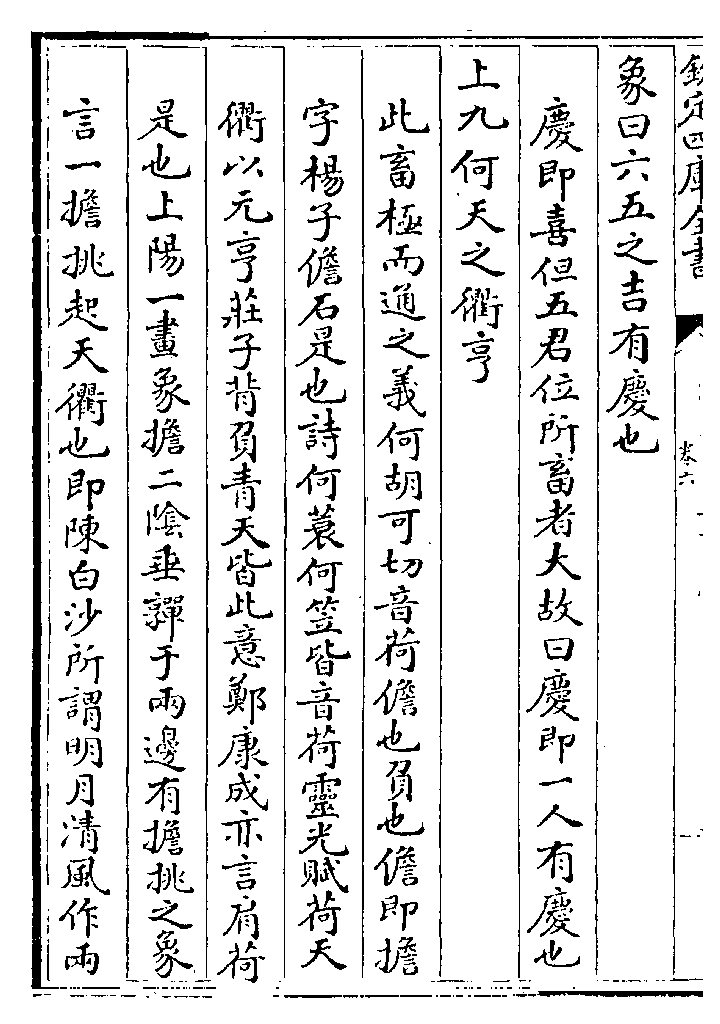 欽定四庫全書
卷六
象曰六五之吉有慶也
慶即喜但五君位所畜者大故曰慶即一人有慶也
上九何天之衢亨
此畜極而通之義何胡可切音荷儋也負也儋即擔
字楊子儋石是也詩何蓑何笠皆音荷靈光賦荷天
衢以元亨莊子背負青天皆此意鄭康成亦言肩荷
是也上陽一畫象擔二陰垂嚲于兩邊有擔挑之象
言一擔挑起天衢也即陳白沙所謂明月清風作兩